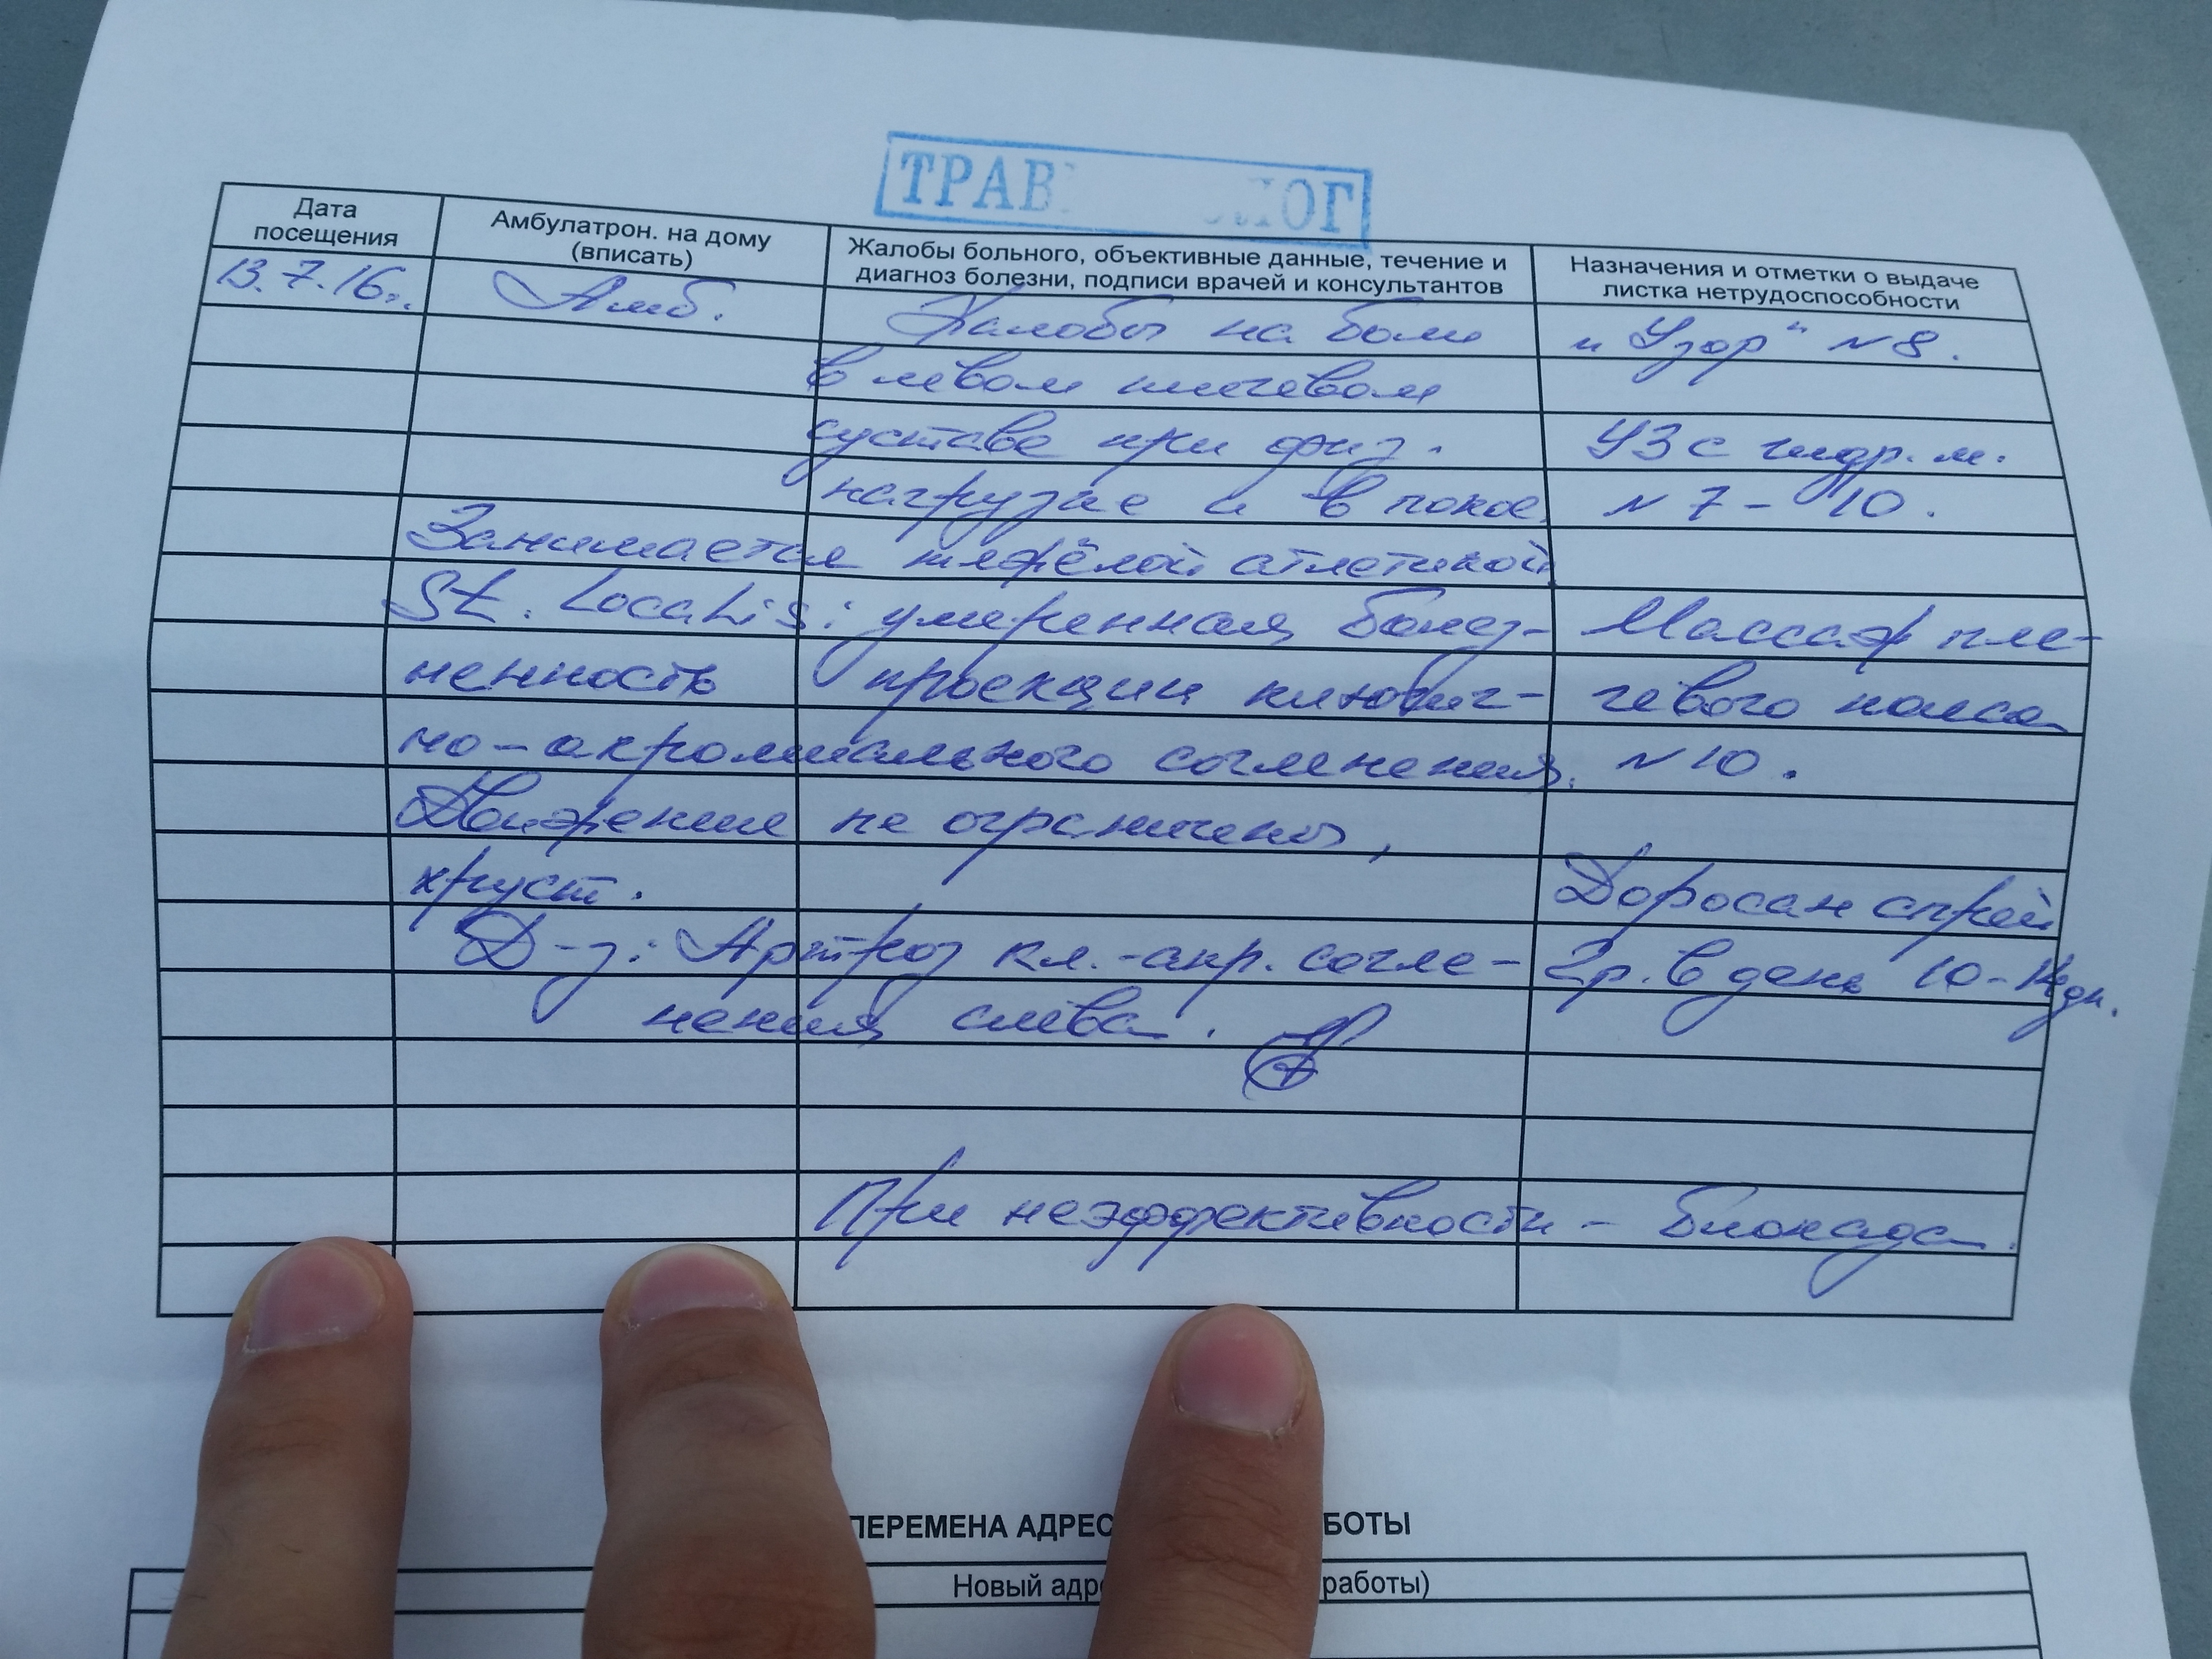 ТРАВ ЛОГ
Дата посещения
Амбулатрон. на дому
(вписать)
Жалобы больного, объективные данные, течение и
диагноз болезни, подписи врачей и консультантов
Назначения и отметки о выдаче
листка нетрудоспособности
13.7.16г.
Амб.
Жалобы на боли
в левом плечевом
суставе при физ.
нагрузке и в покое.
Занимается тяжёлой атлетикой
St. Localis: умеренная болез-
ненность проекции ключич-
но-акромиального сочленения.
Движения не ограничены,
хруст.
Д-з: Артроз кл.-акр. сочле-
нения слева.
"Узор" №8.
УЗ с гидр. м.
№ 7-10.
Массаж пле-
чевого пояса
№10.
Доросан спрей
2р. в день 10-14дн.
При неэффективности - блокада.
ПЕРЕМЕНА АДРЕС БОТЫ
Новый адре работы)